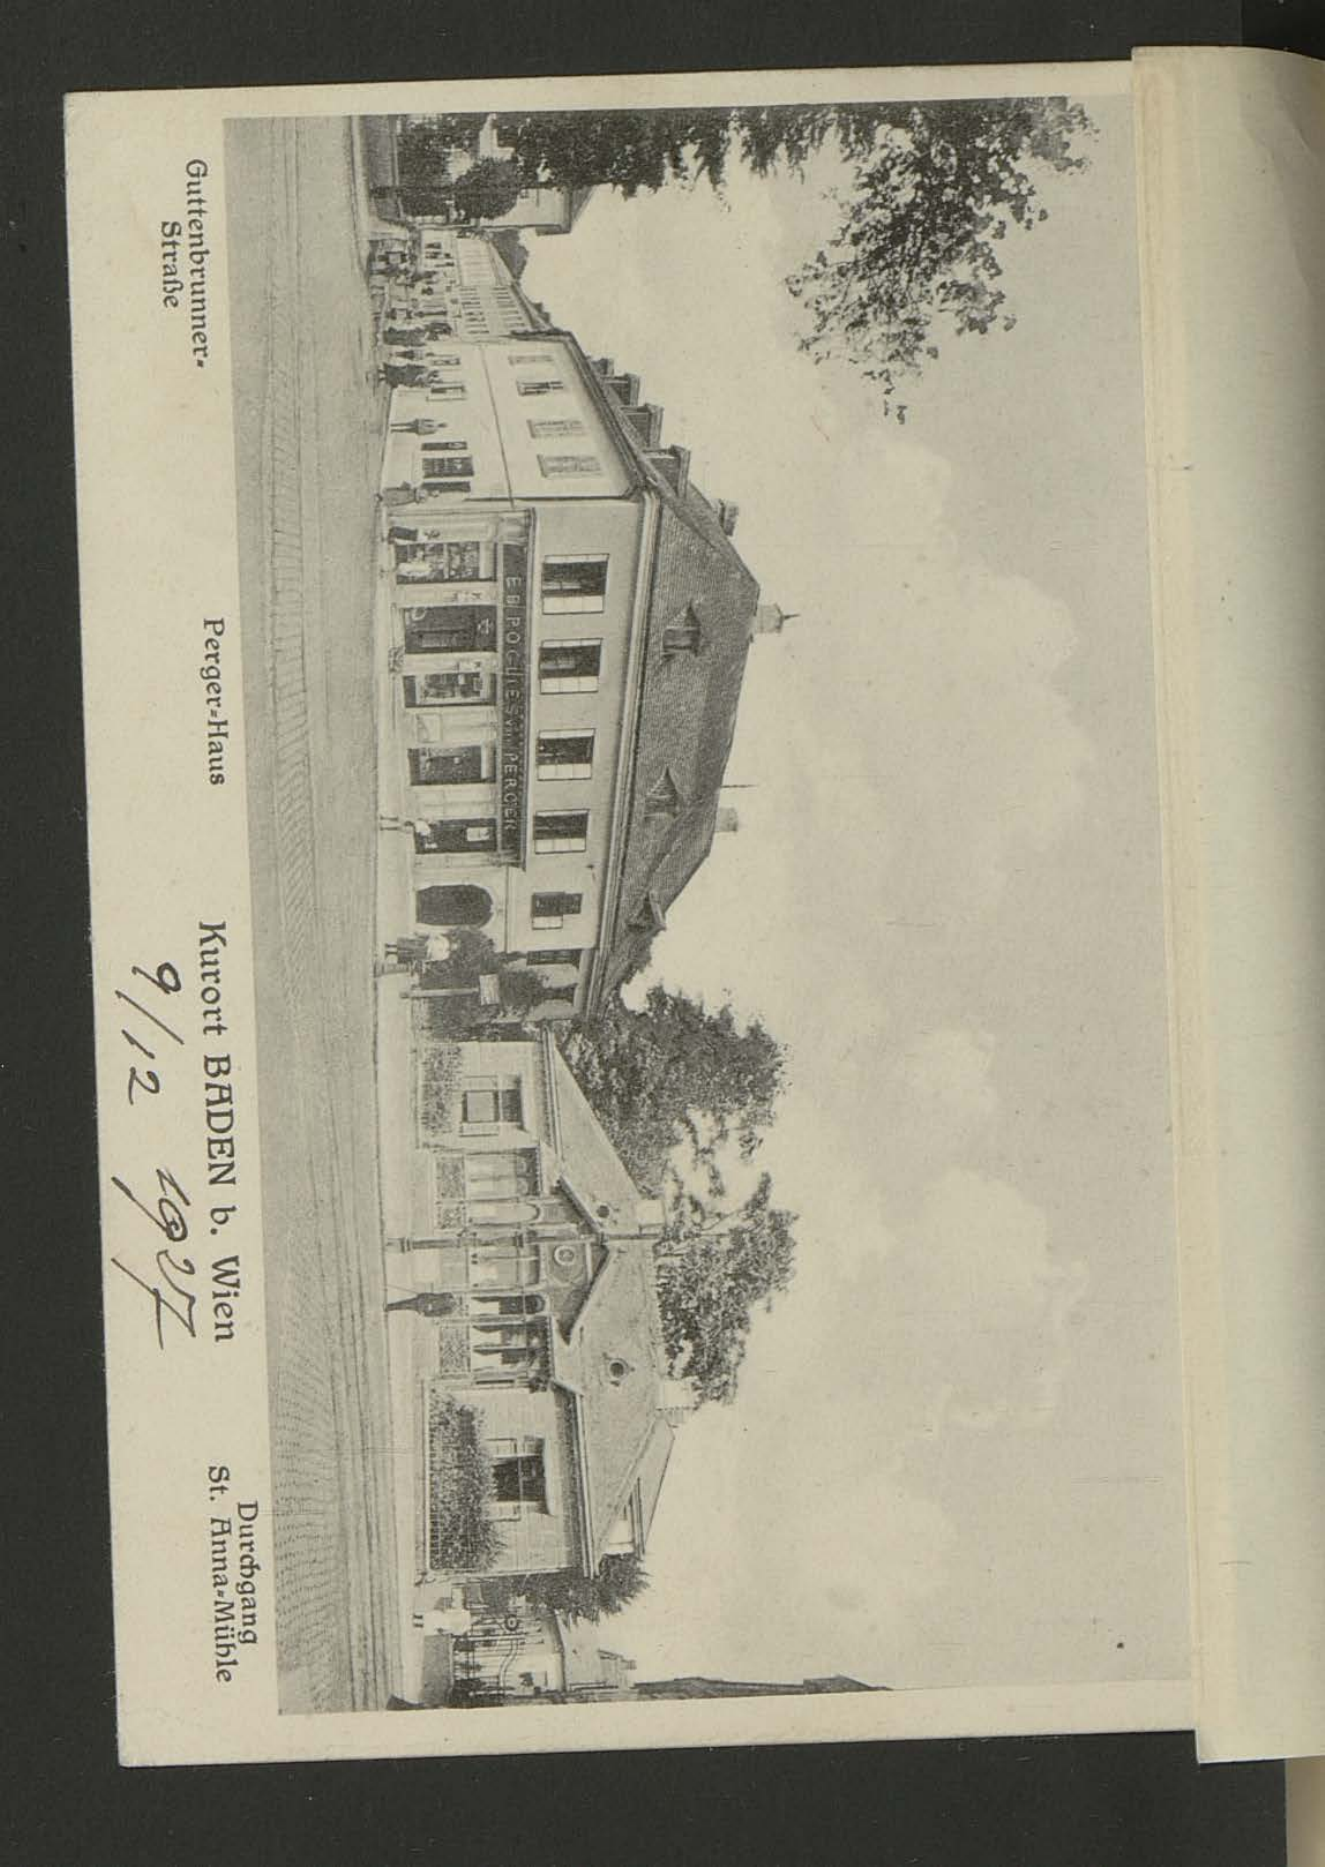 PERGER
Guttenbrunner-
Straße
Perger-Haus
Kurort BADEN b. Wien
Durchgang
St. Anna-Mühle
9/12 1927